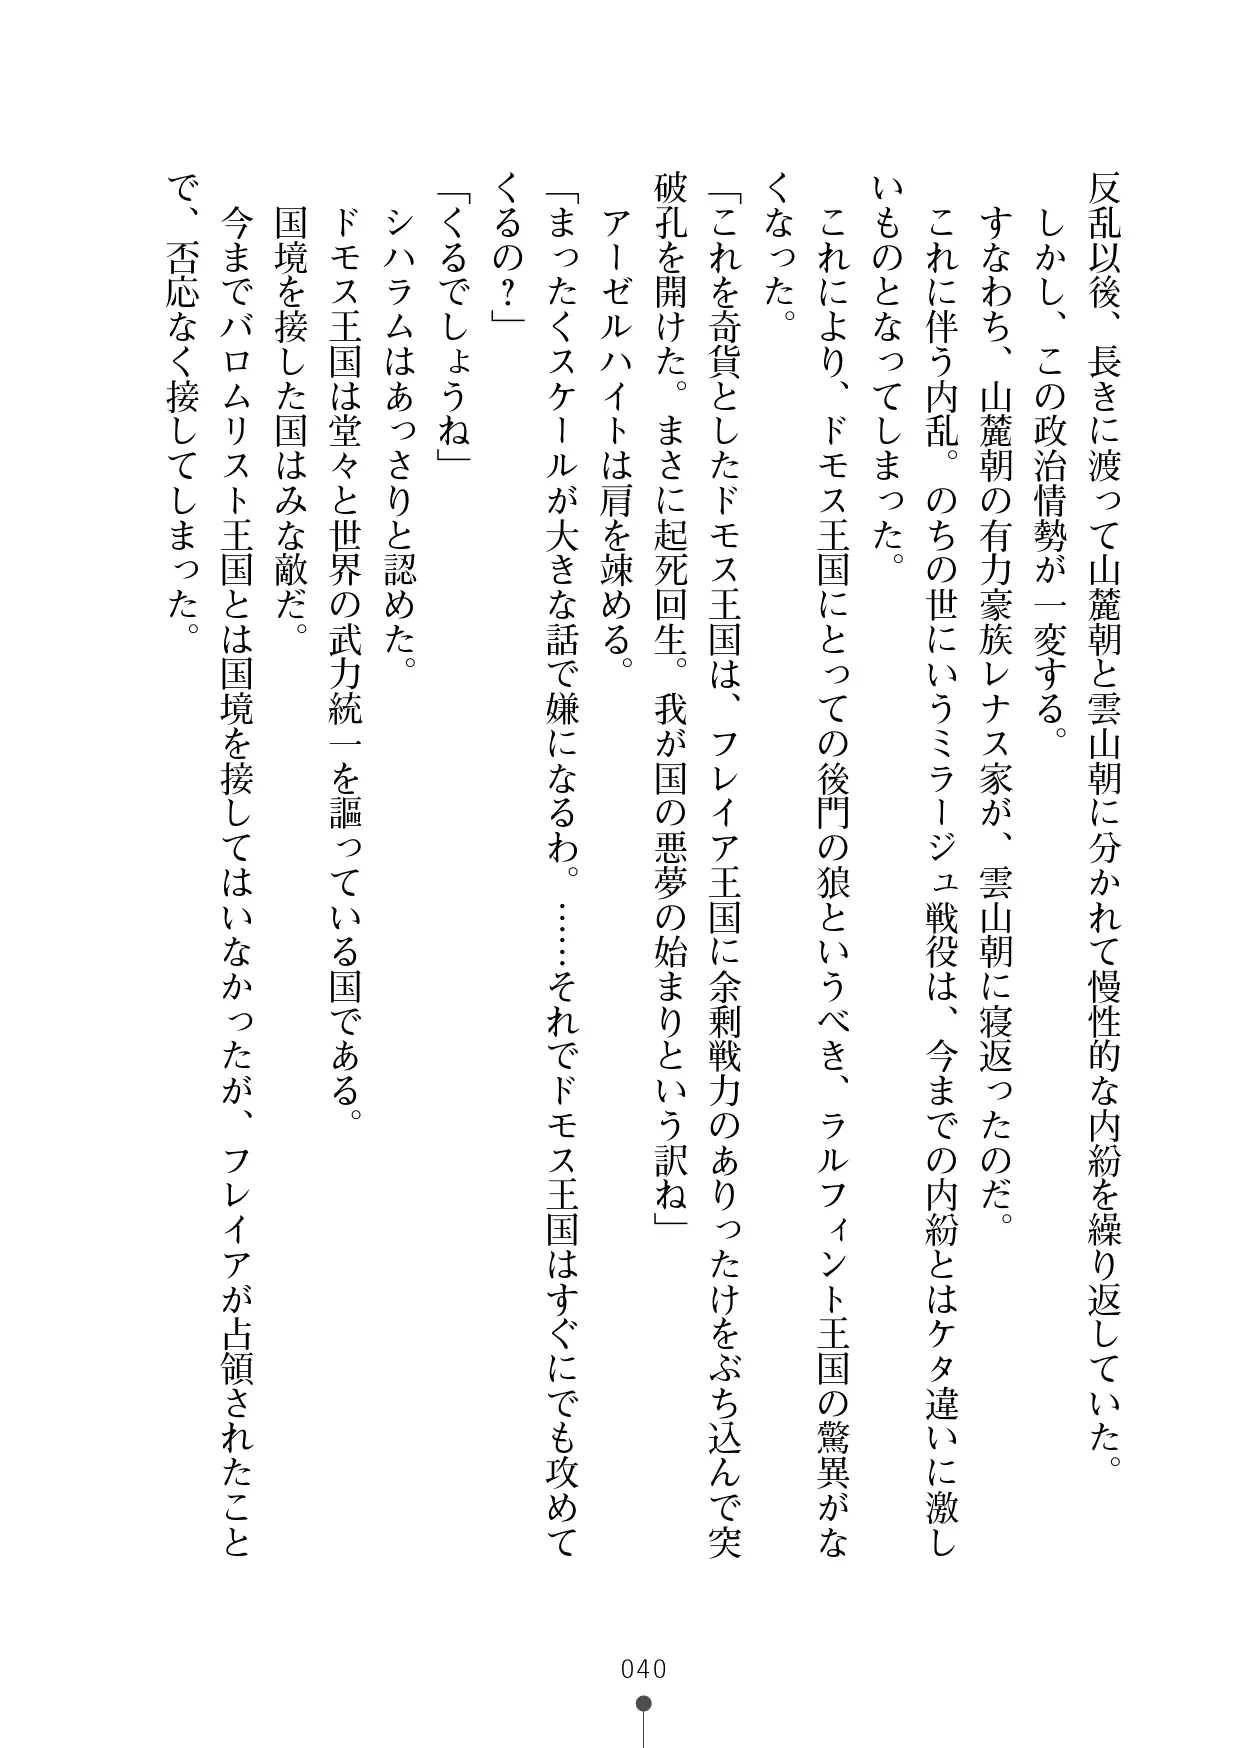 反乱以後、長きに渡って山麓朝と雲山朝に分かれて慢性的な内紛を繰り返していた。
　しかし、この政治情勢が一変する。
　すなわち、山麓朝の有力豪族レナス家が、雲山朝に寝返ったのだ。
　これに伴う内乱。のちの世にいうミラージュ戦役は、今までの内紛とはケタ違いに激し
いものとなってしまった。
　これにより、ドモス王国にとっての後門の狼というべき、ラルフィント王国の驚異がな
くなった。
「これを奇貨としたドモス王国は、フレイア王国に余剰戦力のありったけをぶち込んで突
破孔を開けた。まさに起死回生。我が国の悪夢の始まりという訳ね」
　アーゼルハイトは肩を竦める。
「まったくスケールが大きな話で嫌になるわ。……それでドモス王国はすぐにでも攻めて
くるの？」
「くるでしょうね」
　シハラムはあっさりと認めた。
　ドモス王国は堂々と世界の武力統一を謳っている国である。
　国境を接した国はみな敵だ。
　今までバロムリスト王国とは国境を接してはいなかったが、フレイアが占領されたこと
で、否応なく接してしまった。
040